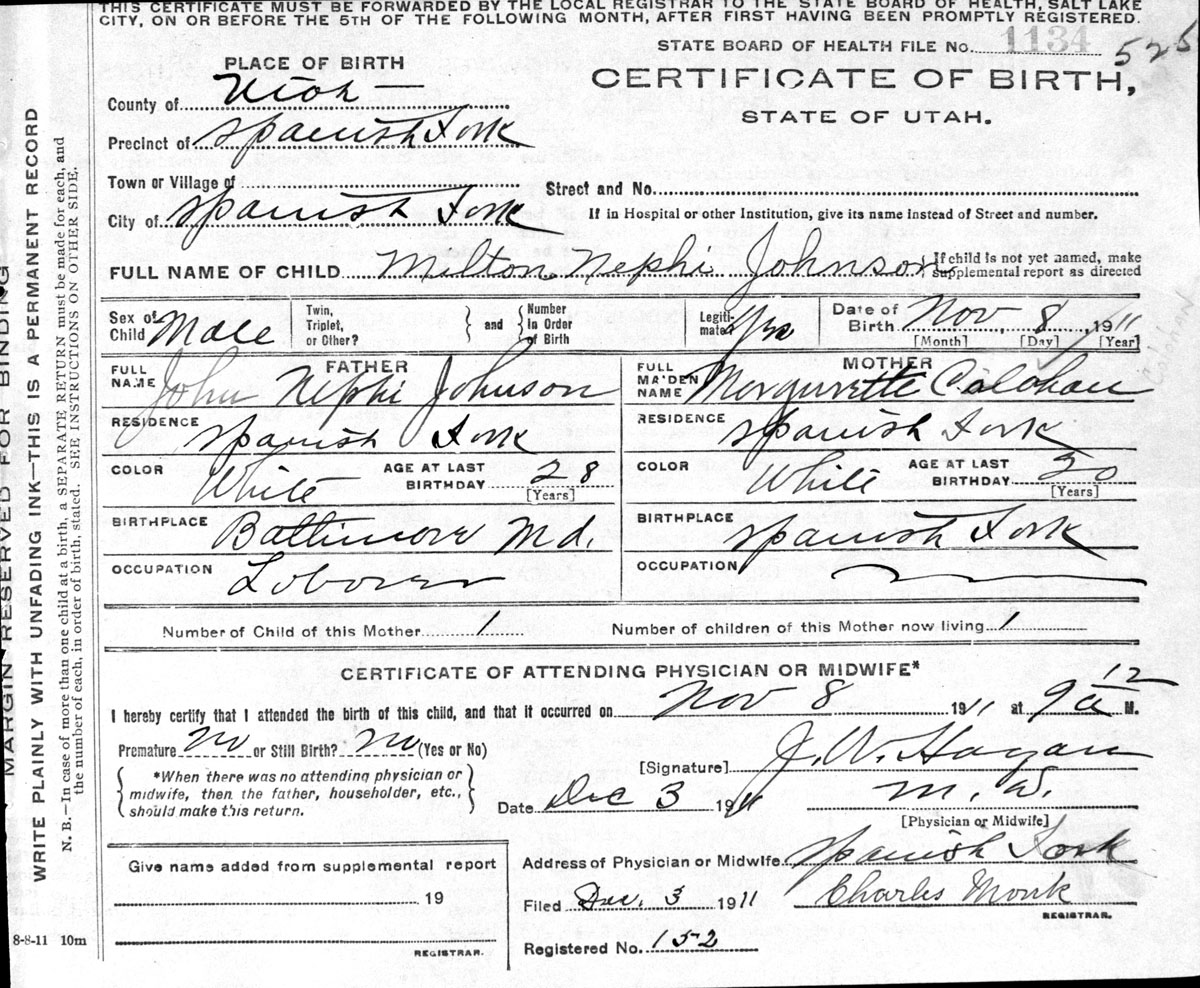 THIS CERTIFICATE MUST BE FORWARDED BY THE LOCAL REGISTRAR TO THE STATE BOARD OF HEALTH, SALT LAKE
CITY, ON OR BEFORE THE 5TH OF THE FOLLOWING MONTH, AFTER FIRST HAVING BEEN PROMPTLY REGISTERED.
STATE BOARD OF HEALTH FILE No. 1134 525
PLACE OF BIRTH
CERTIFICATE OF BIRTH,
STATE OF UTAH.
County of Utah
Precinct of Spanish Fork
Town or Village of
Street and No.
City of Spanish Fork
If in Hospital or other Institution, give its name instead of Street and number.
FULL NAME OF CHILD Melton Nephi Johnson { If child is not yet named, make supplemental report as directed
Sex of Child Male
Twin, Triplet, or Other? } and { Number in Order of Birth
Legitimate? Yes
Date of Birth Nov 8, 1911
[Month] [Day] [Year]
FATHER
FULL NAME John Nephi Johnson
RESIDENCE Spanish Fork
COLOR White AGE AT LAST BIRTHDAY 28
[Years]
BIRTHPLACE Baltimore Md.
OCCUPATION Laborer
MOTHER
FULL MAIDEN NAME Mergurette Calahan
RESIDENCE Spanish Fork
COLOR White AGE AT LAST BIRTHDAY 20
[Years]
BIRTHPLACE Spanish Fork
OCCUPATION
Number of Child of this Mother 1 Number of children of this Mother now living 1
CERTIFICATE OF ATTENDING PHYSICIAN OR MIDWIFE*
I hereby certify that I attended the birth of this child, and that it occurred on Nov 8 1911 at 9 12 a M.
Premature No or Still Birth? No (Yes or No)
{ *When there was no attending physician or midwife, then the father, householder, etc., should make this return. }
[Signature] J. W. Hagan
Date Dec 3 1911 M. D.
[Physician or Midwife]
Give name added from supplemental report
19
REGISTRAR.
Address of Physician or Midwife Spanish Fork
Filed Dec. 3 1911 Charles Monk
REGISTRAR.
Registered No. 152
8-8-11 10m
MARGIN RESERVED FOR BINDING
WRITE PLAINLY WITH UNFADING INK—THIS IS A PERMANENT RECORD
N. B.—In case of more than one child at a birth, a SEPARATE RETURN must be made for each, and
the number of each, in order of birth, stated. SEE INSTRUCTIONS ON OTHER SIDE.